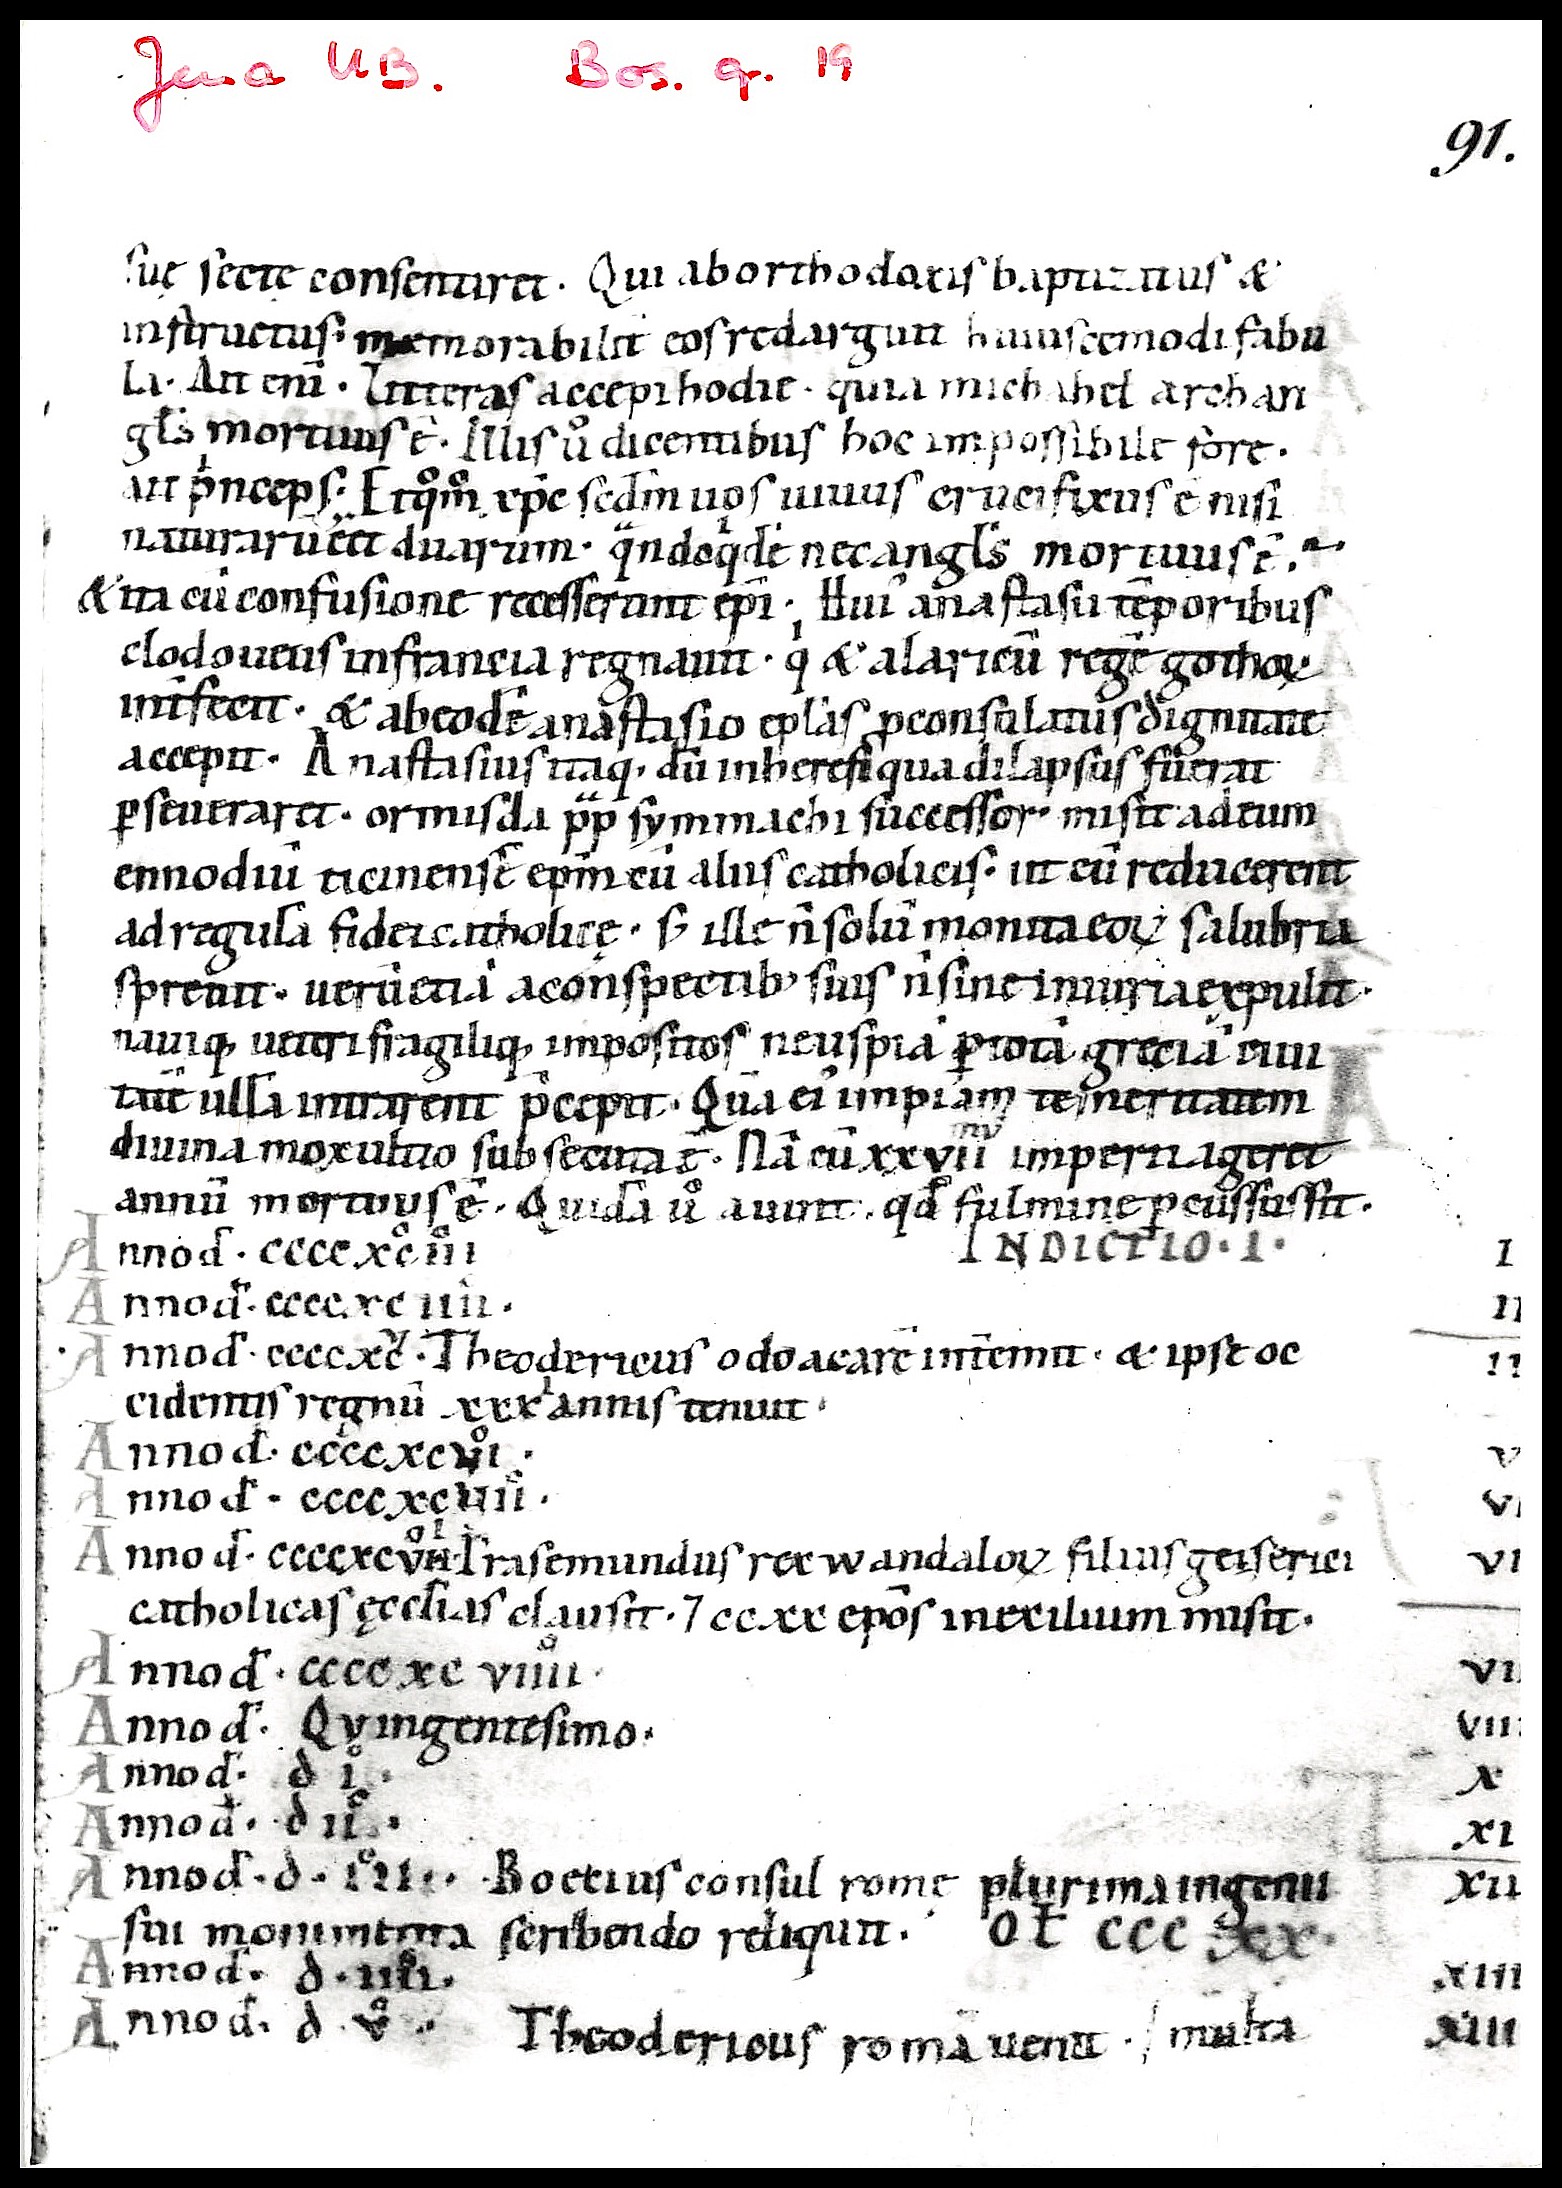 Jena UB. Bos. q. 19
91.
suę sectę consentiret. Qui ab orthodoxis baptizatus &
instructus. memorabilit eos redarguit huiuscemodi fabu
la. Ait eni̅. Litteras accepi hodie. quia michahel archan
gl̅s mortuus e̅. Illis ů dicentibus hoc impossibile fore.
ait pͥnceps. Et qͦmͦ xp̅c sed̅m uos uiuus crucifixus e̅ nisi
naturaru̅ e̅et duarum. qͣndoqͥde̅ nec angl̅s mortuus e̅.
& ita cu̅ confusione recesserunt ep̅i. Hui̅ anastasii te̅poribus
clodoueus in francia regnauit. qͥ & alaricu̅ rege̅ gothoꝝ
int̅fecit. & ab eode̅ anastasio epl̅as ꝓconsulatus dignitate
accepit. Anastasius itaq. du̅ in heresi qua dilapsus fuerat
ꝑseueraret. ormisda pp̅ symmachi successor. misit ad eum
ennodiu̅ ticinense̅ ep̅m cu̅ aliis catholicis. ut eu̅ reducerent
ad regula̅ fidei catholicę. sꝫ ille n̅ solu̅ monita eoꝝ salubria
spreuit. ueru̅ etia̅ a conspectibꝫ suis n̅ sine iniuria expulit.
nauiqꝫ ueteri fragiliqꝫ impositos ne uspia̅ ꝑ tota̅ grecia̅ ciui
tate̅ ulla̅ intrarent p̅cepit. Qua̅ ei̅ impiam temeritatem
diuina mox ultio subsecuta e̅. Na̅ cu̅ xxvii imperii ageret
annu̅ mortuus e̅. Quida̅ ů aiunt. qd̅ fulmine ꝑcussus sit.
Anno d̅. cccc xcͦ iiiͦ INDICTIO. I. I
Anno d̅. cccc xc iiii. II
Anno d̅. cccc xcv̊. Theodericus odoacare̅ inte̅mit. & ipse oc
cidentis regnu̅ xxxͥ annis tenuit.
Anno d̅. cccc xcviͦ. v
Anno d̅. cccc xcviiͦ. vi
Anno d̅. cccc xcviiiͦ. Trasemundus rex wandaloꝝ filius geiserici
catholicas ęccl̅ias clausit. ⁊ ccxx epo̅s in exilium misit.
Anno d̅. cccc xc viiiiͦ.
Anno d̅. Quingentesimo.
Anno d̅. d iͦ. x
Anno d̅. d iiͦ. xi
Anno d̅. d. iiiͦ. Boetius consul romę plurima ingenii xii
sui monumenta scribendo reliquit. OL CCC XX.
Anno d̅. d. iiiiͦ. xiii
Anno d̅. d. v̊. Theodericus roma̅ uenit. / multa xiiii